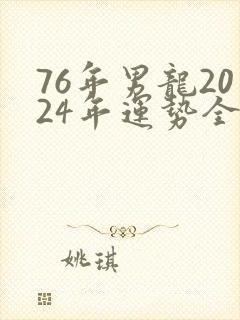 76年男龍20
24年運势全
姚琪